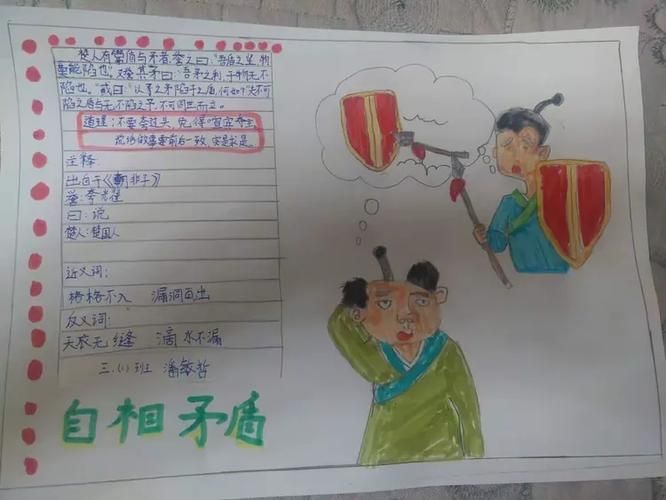 楚人有鬻盾与矛者,誉之曰:"吾盾之坚,物
莫能陷也。"又誉其矛曰:"吾矛之利,于物无不
陷也。"或曰:"以子之矛陷子之盾,何如?"夫不可
陷之盾与无不陷之矛,不可同世而立。
道理:不要夸过头,免得
说话做事要前后一致,实事求是。
注释:
出自于《韩非子》
誉:夸耀
曰:说
楚人:楚国人
近义词:
格格不入 漏洞百出
反义词:
天衣无缝 滴水不漏
三.(1)班 潘敏哲
自相矛盾